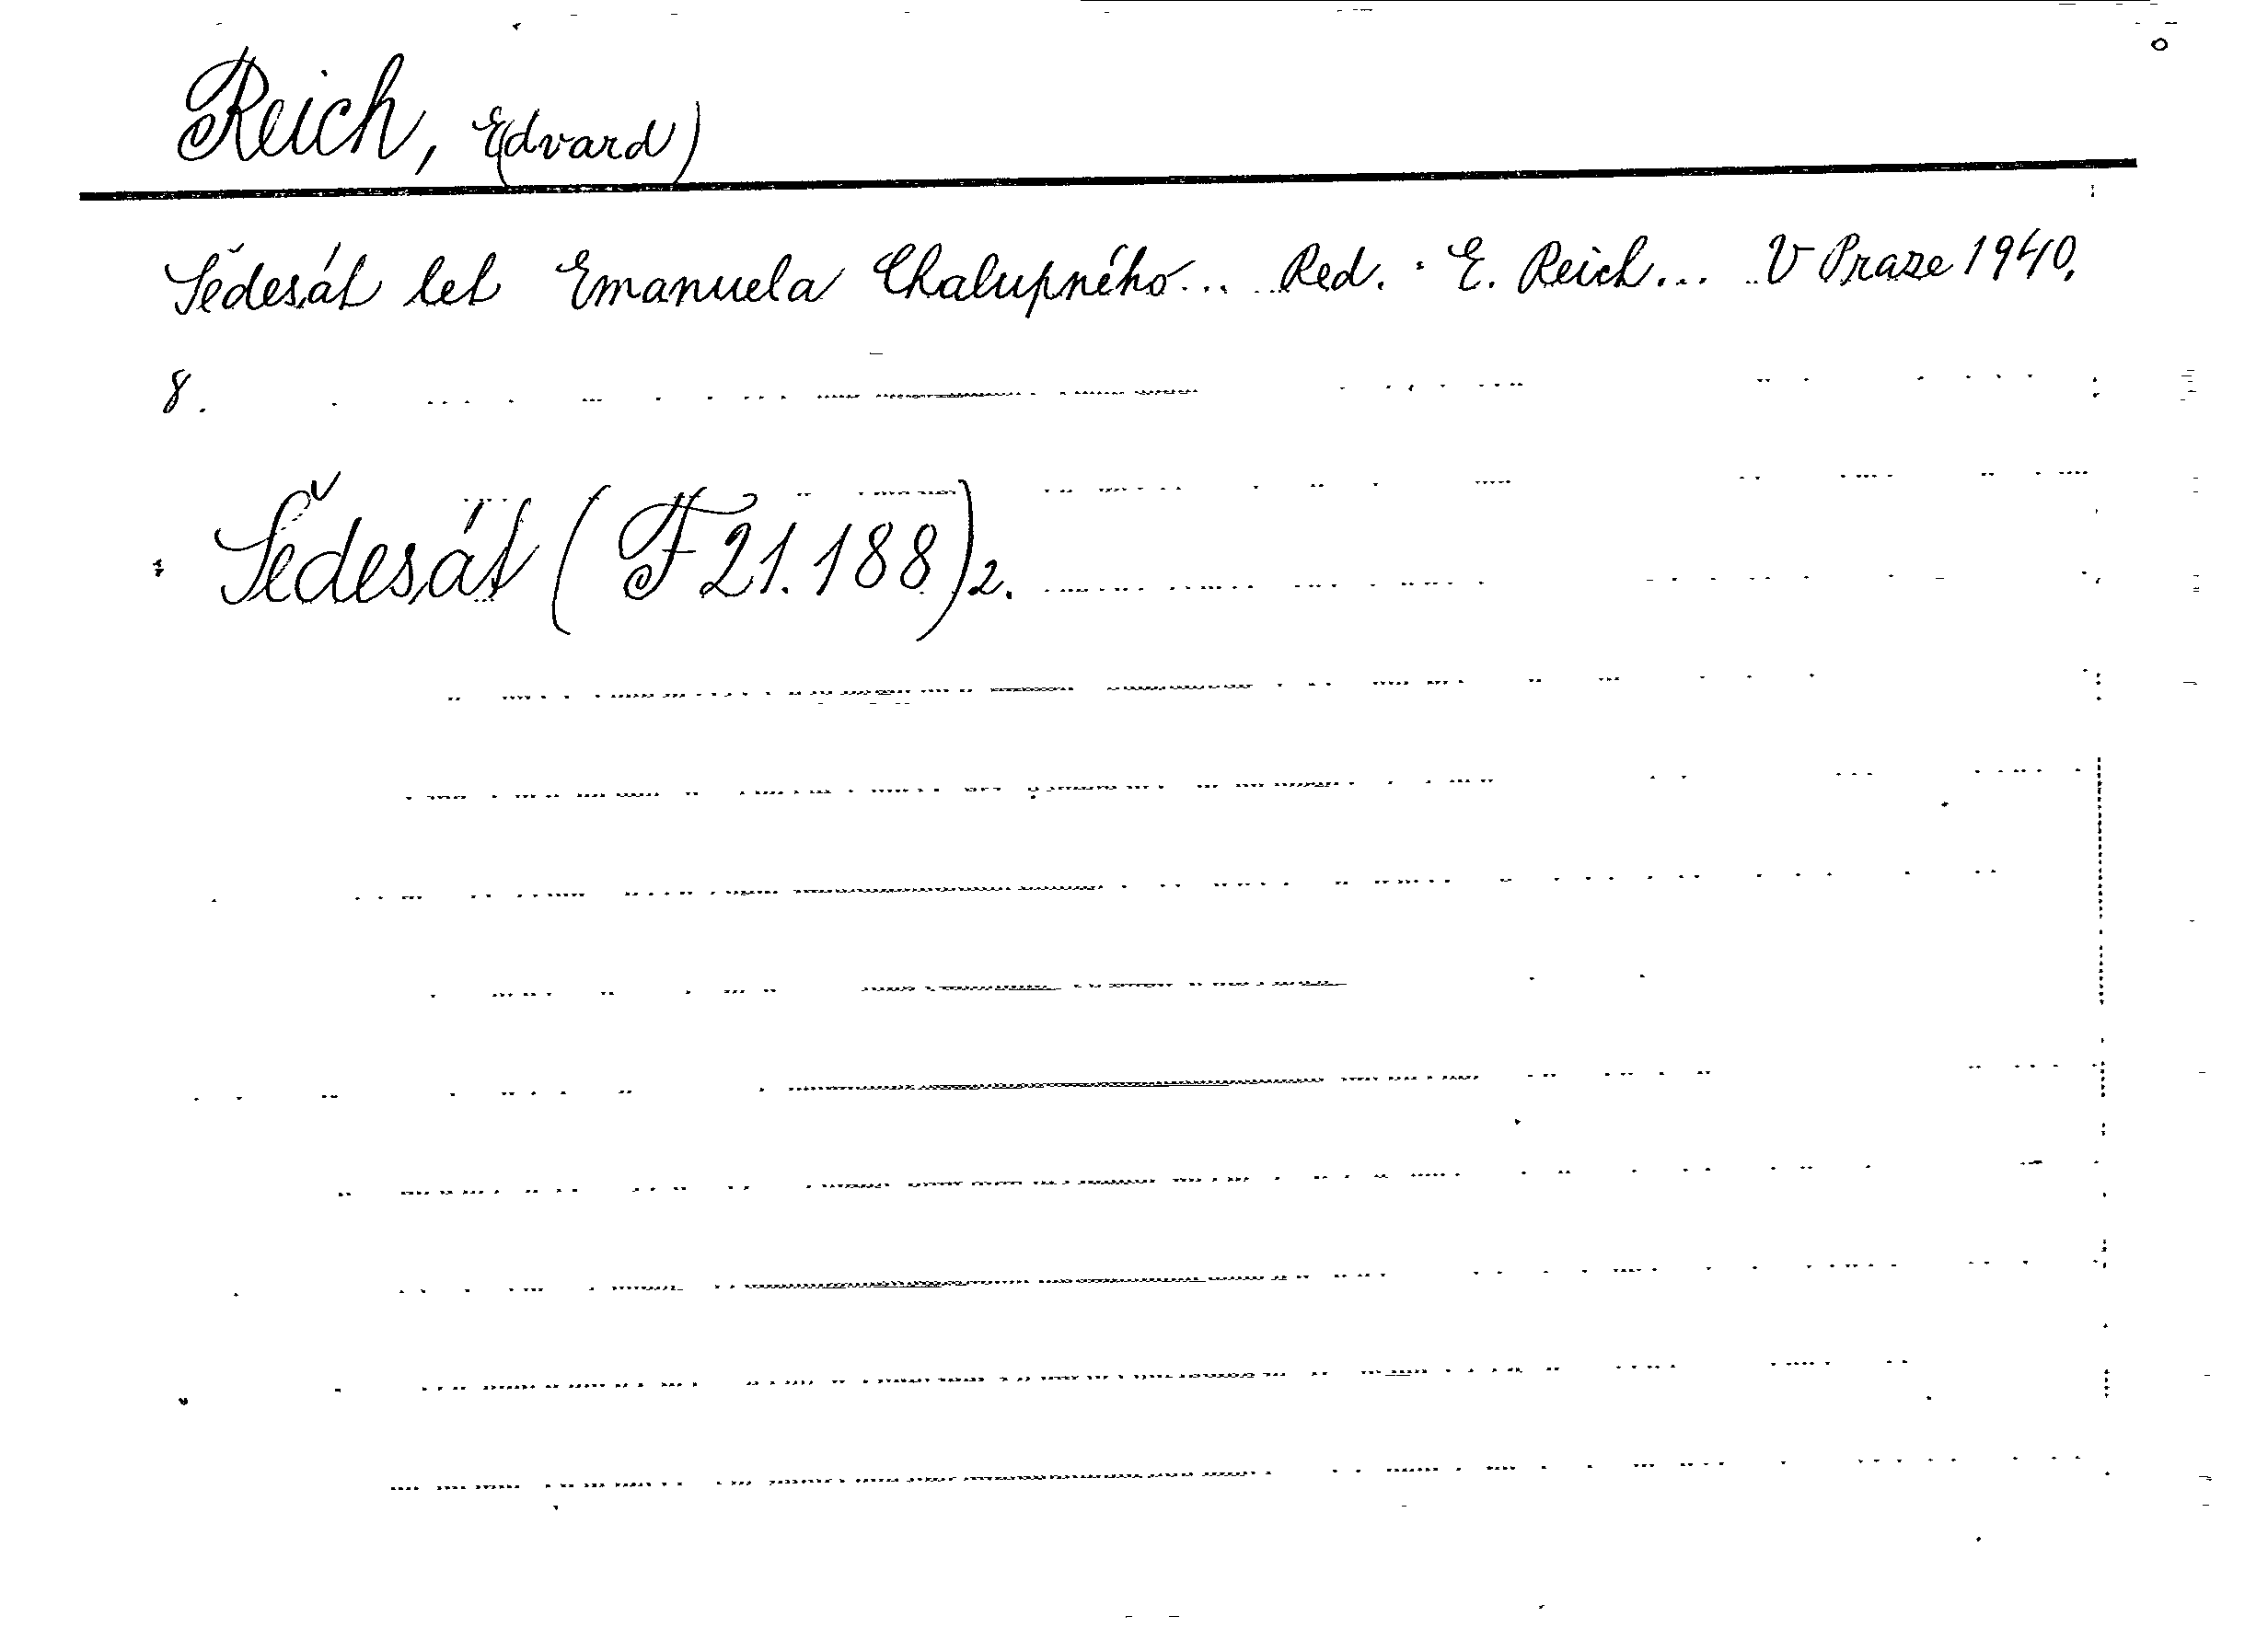 Reich, E(dvard)
Šedesát let Emanuela Chalupného... Red. E. Reich... V Praze 1940.
8.
Šedesát (F 21.188) 2.